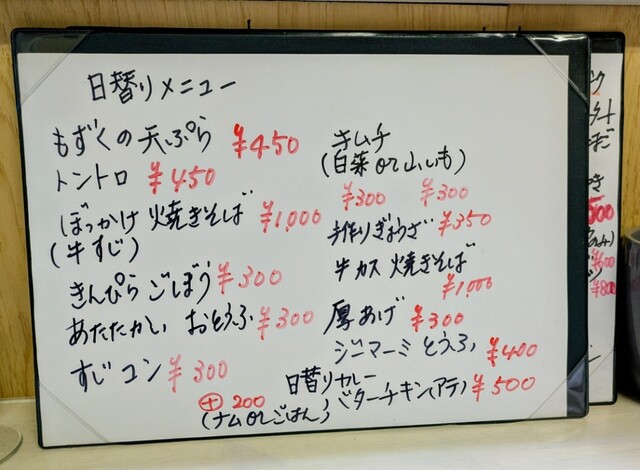 日替りメニュー
もずくの天ぷら ¥450
トントロ ¥450
ぼっかけ焼きそば ¥1,000
(牛すじ)
きんぴらごぼう ¥300
あたたかい おとうふ ¥300
すじコン ¥300
キムチ
(白菜 or 山いも)
¥300 ¥300
手作りぎょうざ ¥350
牛カス焼きそば
¥1,000
厚あげ ¥300
ジーマーミとうふ ¥400
日替りカレー
バターチキン(アテ) ¥500
⊕ 200
(ナム or ごはん)
500
¥600
¥800